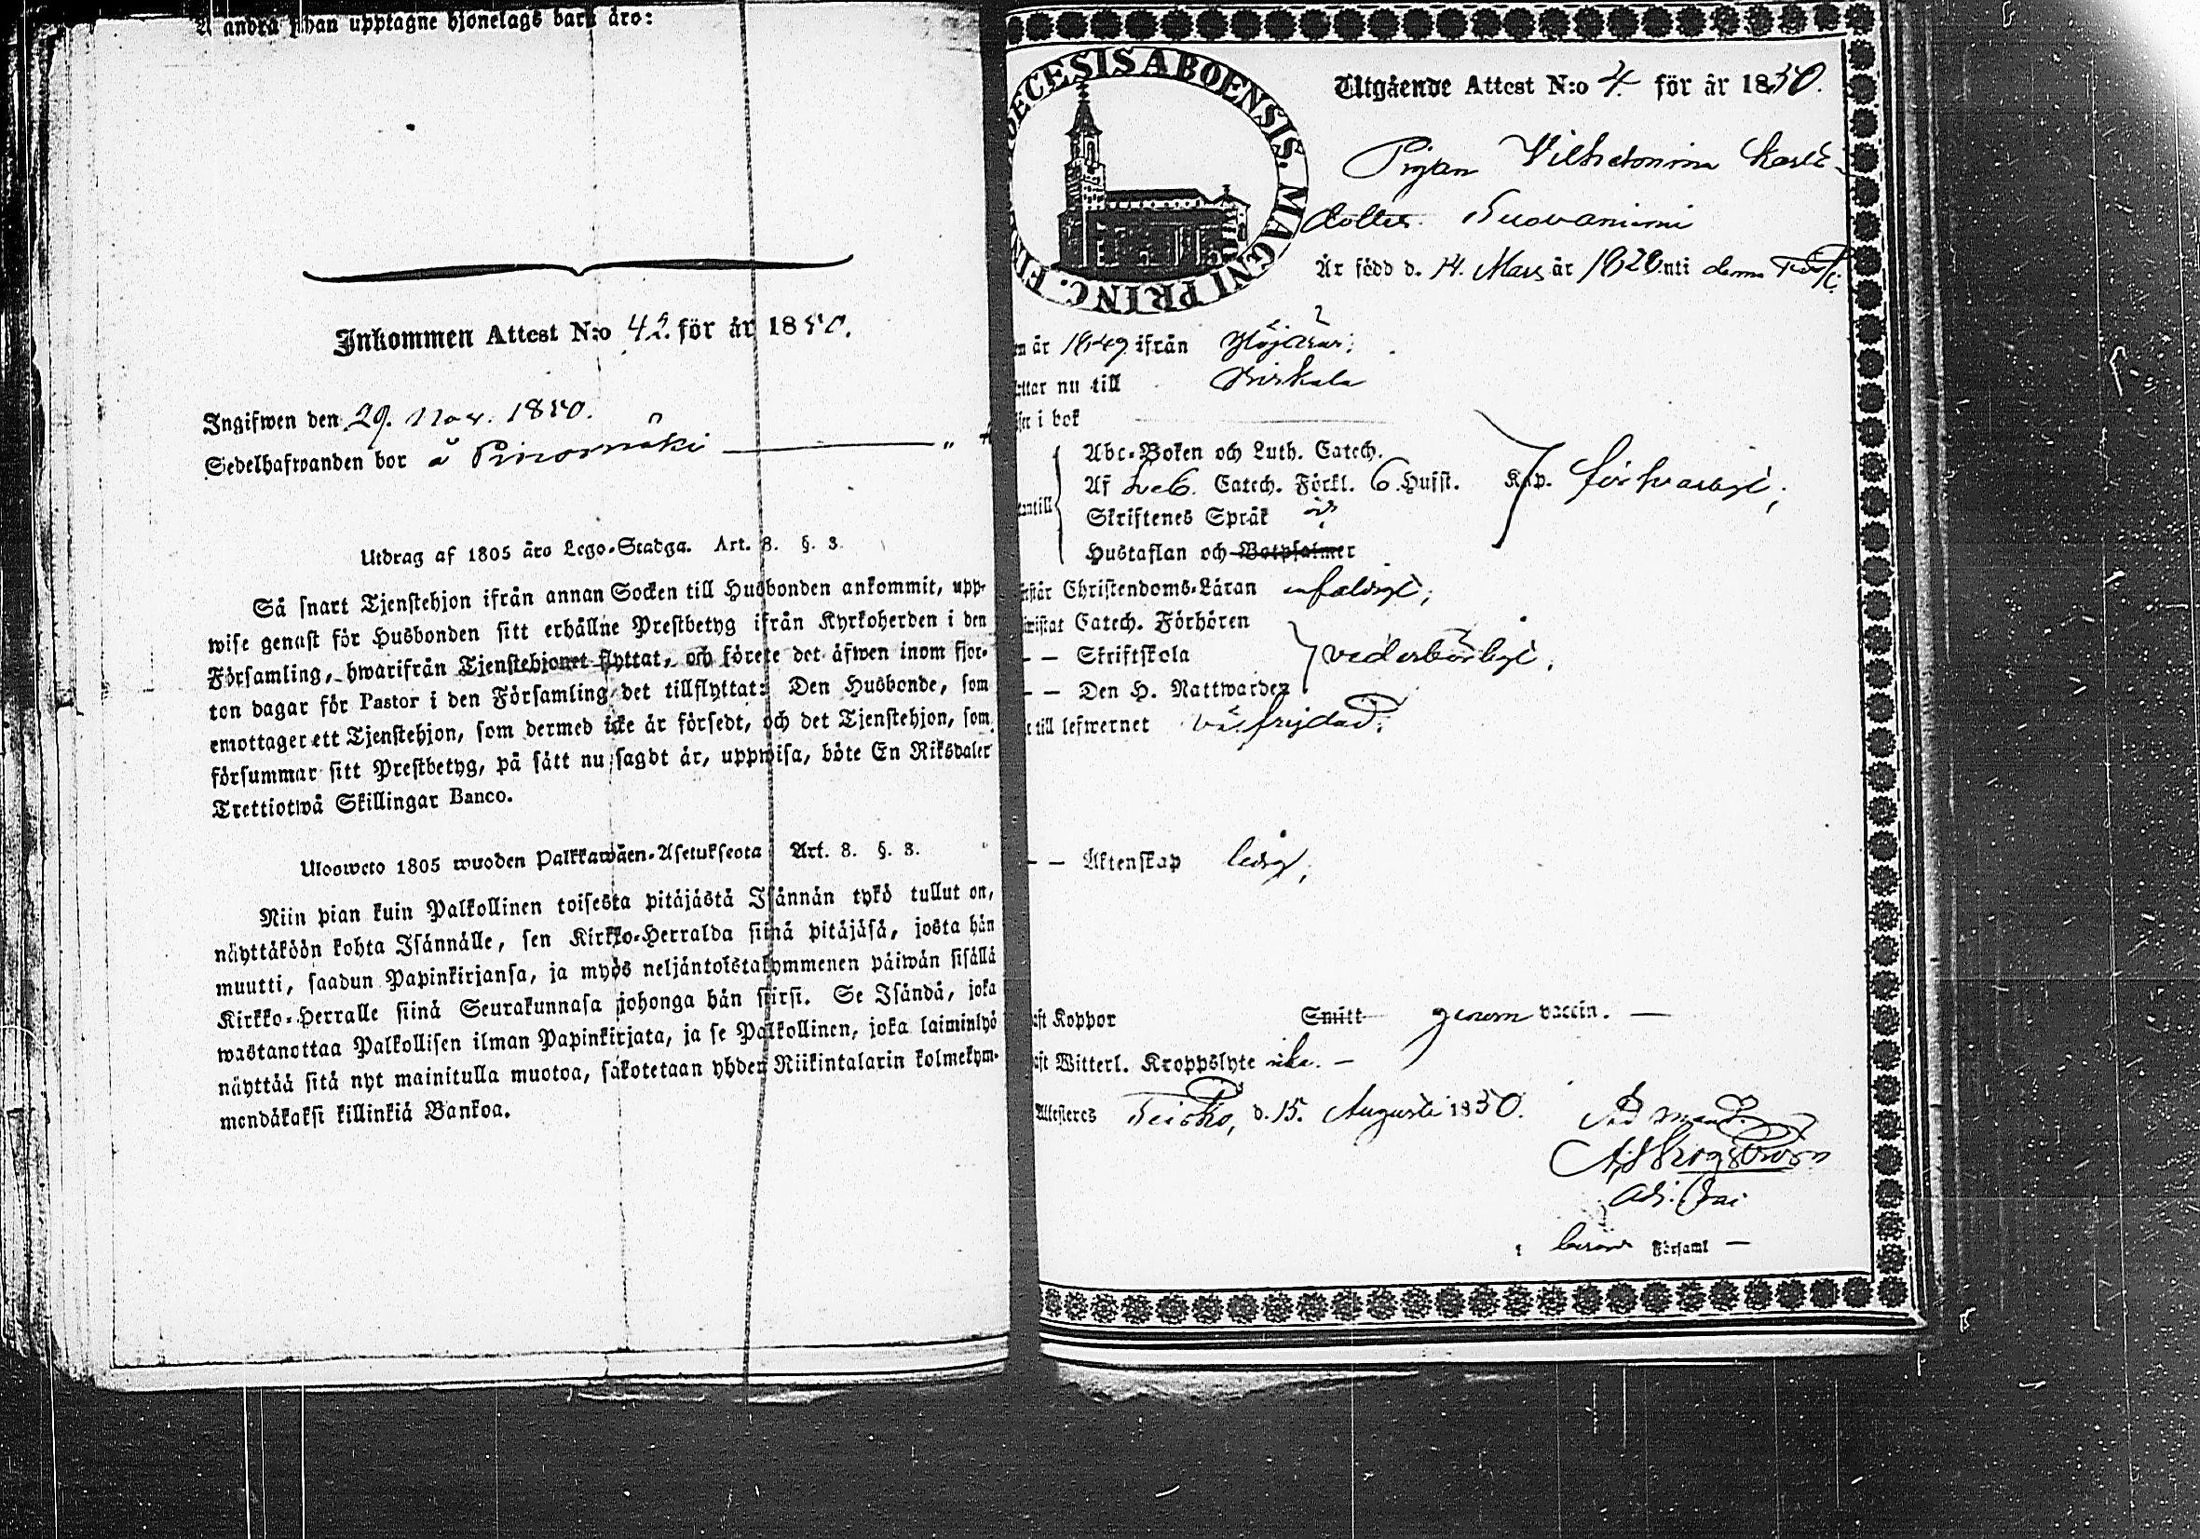 andra
upptagne hjonelags barn äro:
Inkommen Attest N:o 42. för år 1850.
Ingifwen den 29. Nov. 1850.
Sedelhafwanden bor å Pinomäki — "
Utdrag af 1805 års Lego-Stadga. Art. 8. §. 3.
Så snart Tjenstehjon ifrån annan Socken till Husbonden ankommit, upp-
wise genast för Husbonden sitt erhållne Prestbetyg ifrån Kyrkoherden i den
Församling, hwarifrån Tjenstehjonet flyttat, och förete det äfwen inom fjor-
ton dagar för Pastor i den Församling det tillflyttat: Den Husbonde, som
emottager ett Tjenstehjon, som dermed icke är försedt, och det Tjenstehjon, som
försummar sitt Prestbetyg, på sätt nu sagdt är, uppwisa, böte En Riksdaler
Trettiotwå Skillingar Banco.
Ulosweto 1805 wuoden Palkkawäen-Asetuksesta Art. 8. §. 3.
Niin pian kuin Palkollinen toisesta pitäjästä Isännän tykö tullut on,
näyttäköön kohta Isännälle, sen Kirkko-Herralda siinä pitäjäsä, josta hän
muutti, saadun Papinkirjansa, ja myös neljäntoistakymmenen päiwän sisällä
Kirkko-Herralle siinä Seurakunnasa johonga hän siirsi. Se Isändä, joka
wastanottaa Palkollisen ilman Papinkirjata, ja se Palkollinen, joka laiminlyö
näyttää sitä nyt mainitulla muotoa, sakotetaan yhden Riikintalarin kolmekym-
mendäkaksi killinkiä Bankoa.
DECESIS ABOENSIS. MAGNI PRINC.
Utgående Attest N:o 4. för år 1850.
Pigan Vilhelmina Karls-
dotter
Är född d. 14. Mars år 1828 uti denna
n år 1849 ifrån
ttar nu till Birkala
i bok
Abc-Boken och Luth. Catech.
Af Catech. Förkl. 6. Hufst. Kap. försvarligt;
antill Skriftenes Språk
Hustaflan och Botpsalmer
rstår Christendoms-Läran enfaldigt;
Catech. Förhören
— — Skriftskola vederbörligt.
— — Den H. Nattwarden
till lefwernet välfrejdad;
— — Äktenskap ledig;
aft Koppor Smitt genom vaccin. —
aft Witterl. Kroppslyte icke. —
Attesteras Teisko, d. 15. Augusti 1850.
Ad mand.
Adj.
i Församl —